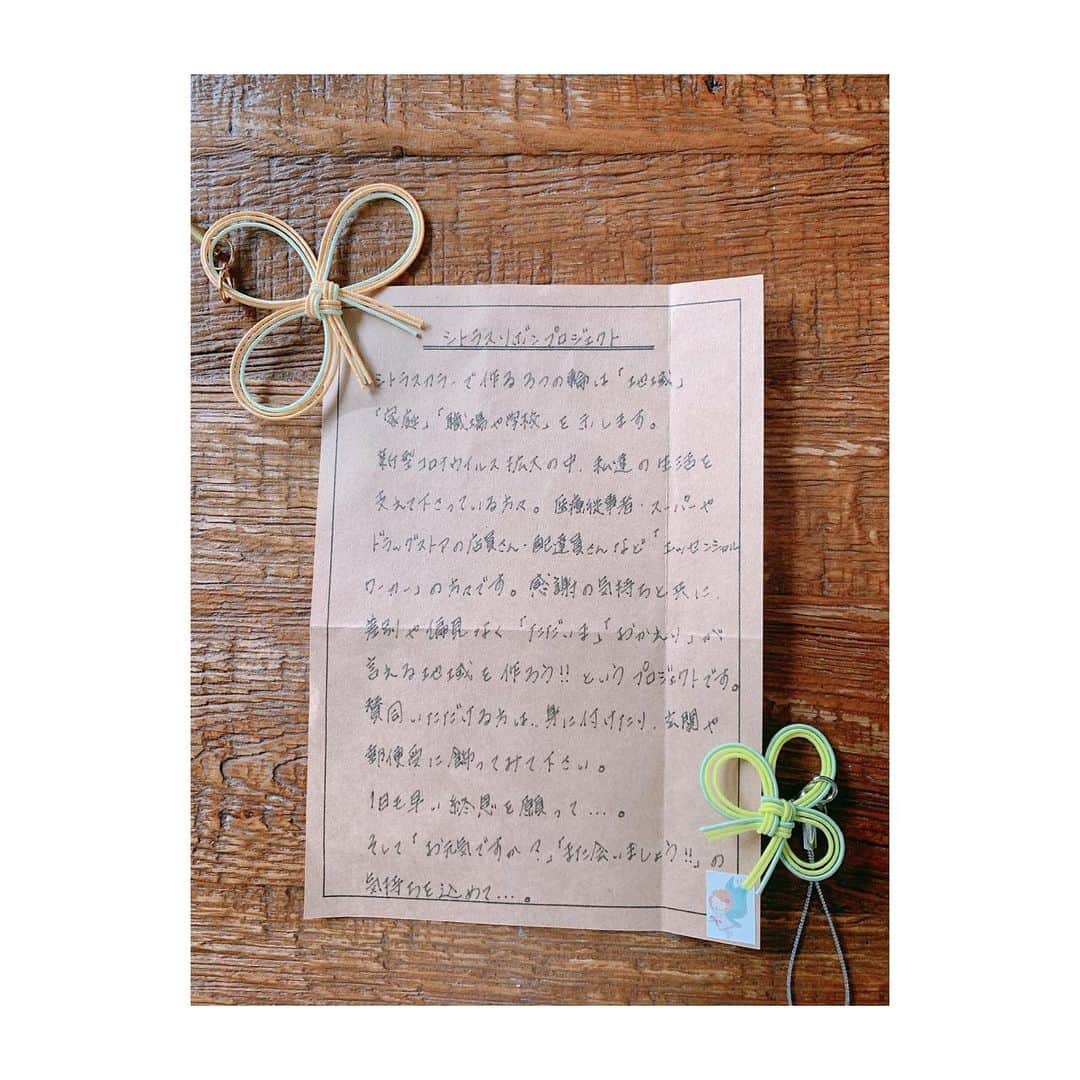 シトラスリボンプロジェクト
シトラスカラーで作る3つの輪は「地域」
「家庭」「職場や学校」を示します。
新型コロナウイルス拡大の中、私達の生活を
支えて下さっている方々。医療従事者・スーパーや
ドラッグストアの店員さん・配達員さんなど「エッセンシャル
ワーカー」の方々です。感謝の気持ちと共に、
差別や偏見なく「ただいま」「おかえり」が
言える地域を作ろう!!というプロジェクトです。
賛同いただける方は、身に付けたり、玄関や
郵便受に飾ってみて下さい。
1日も早い終息を願って…。
そして「お元気ですか?」「また会いましょう!!」の
気持ちを込めて…。